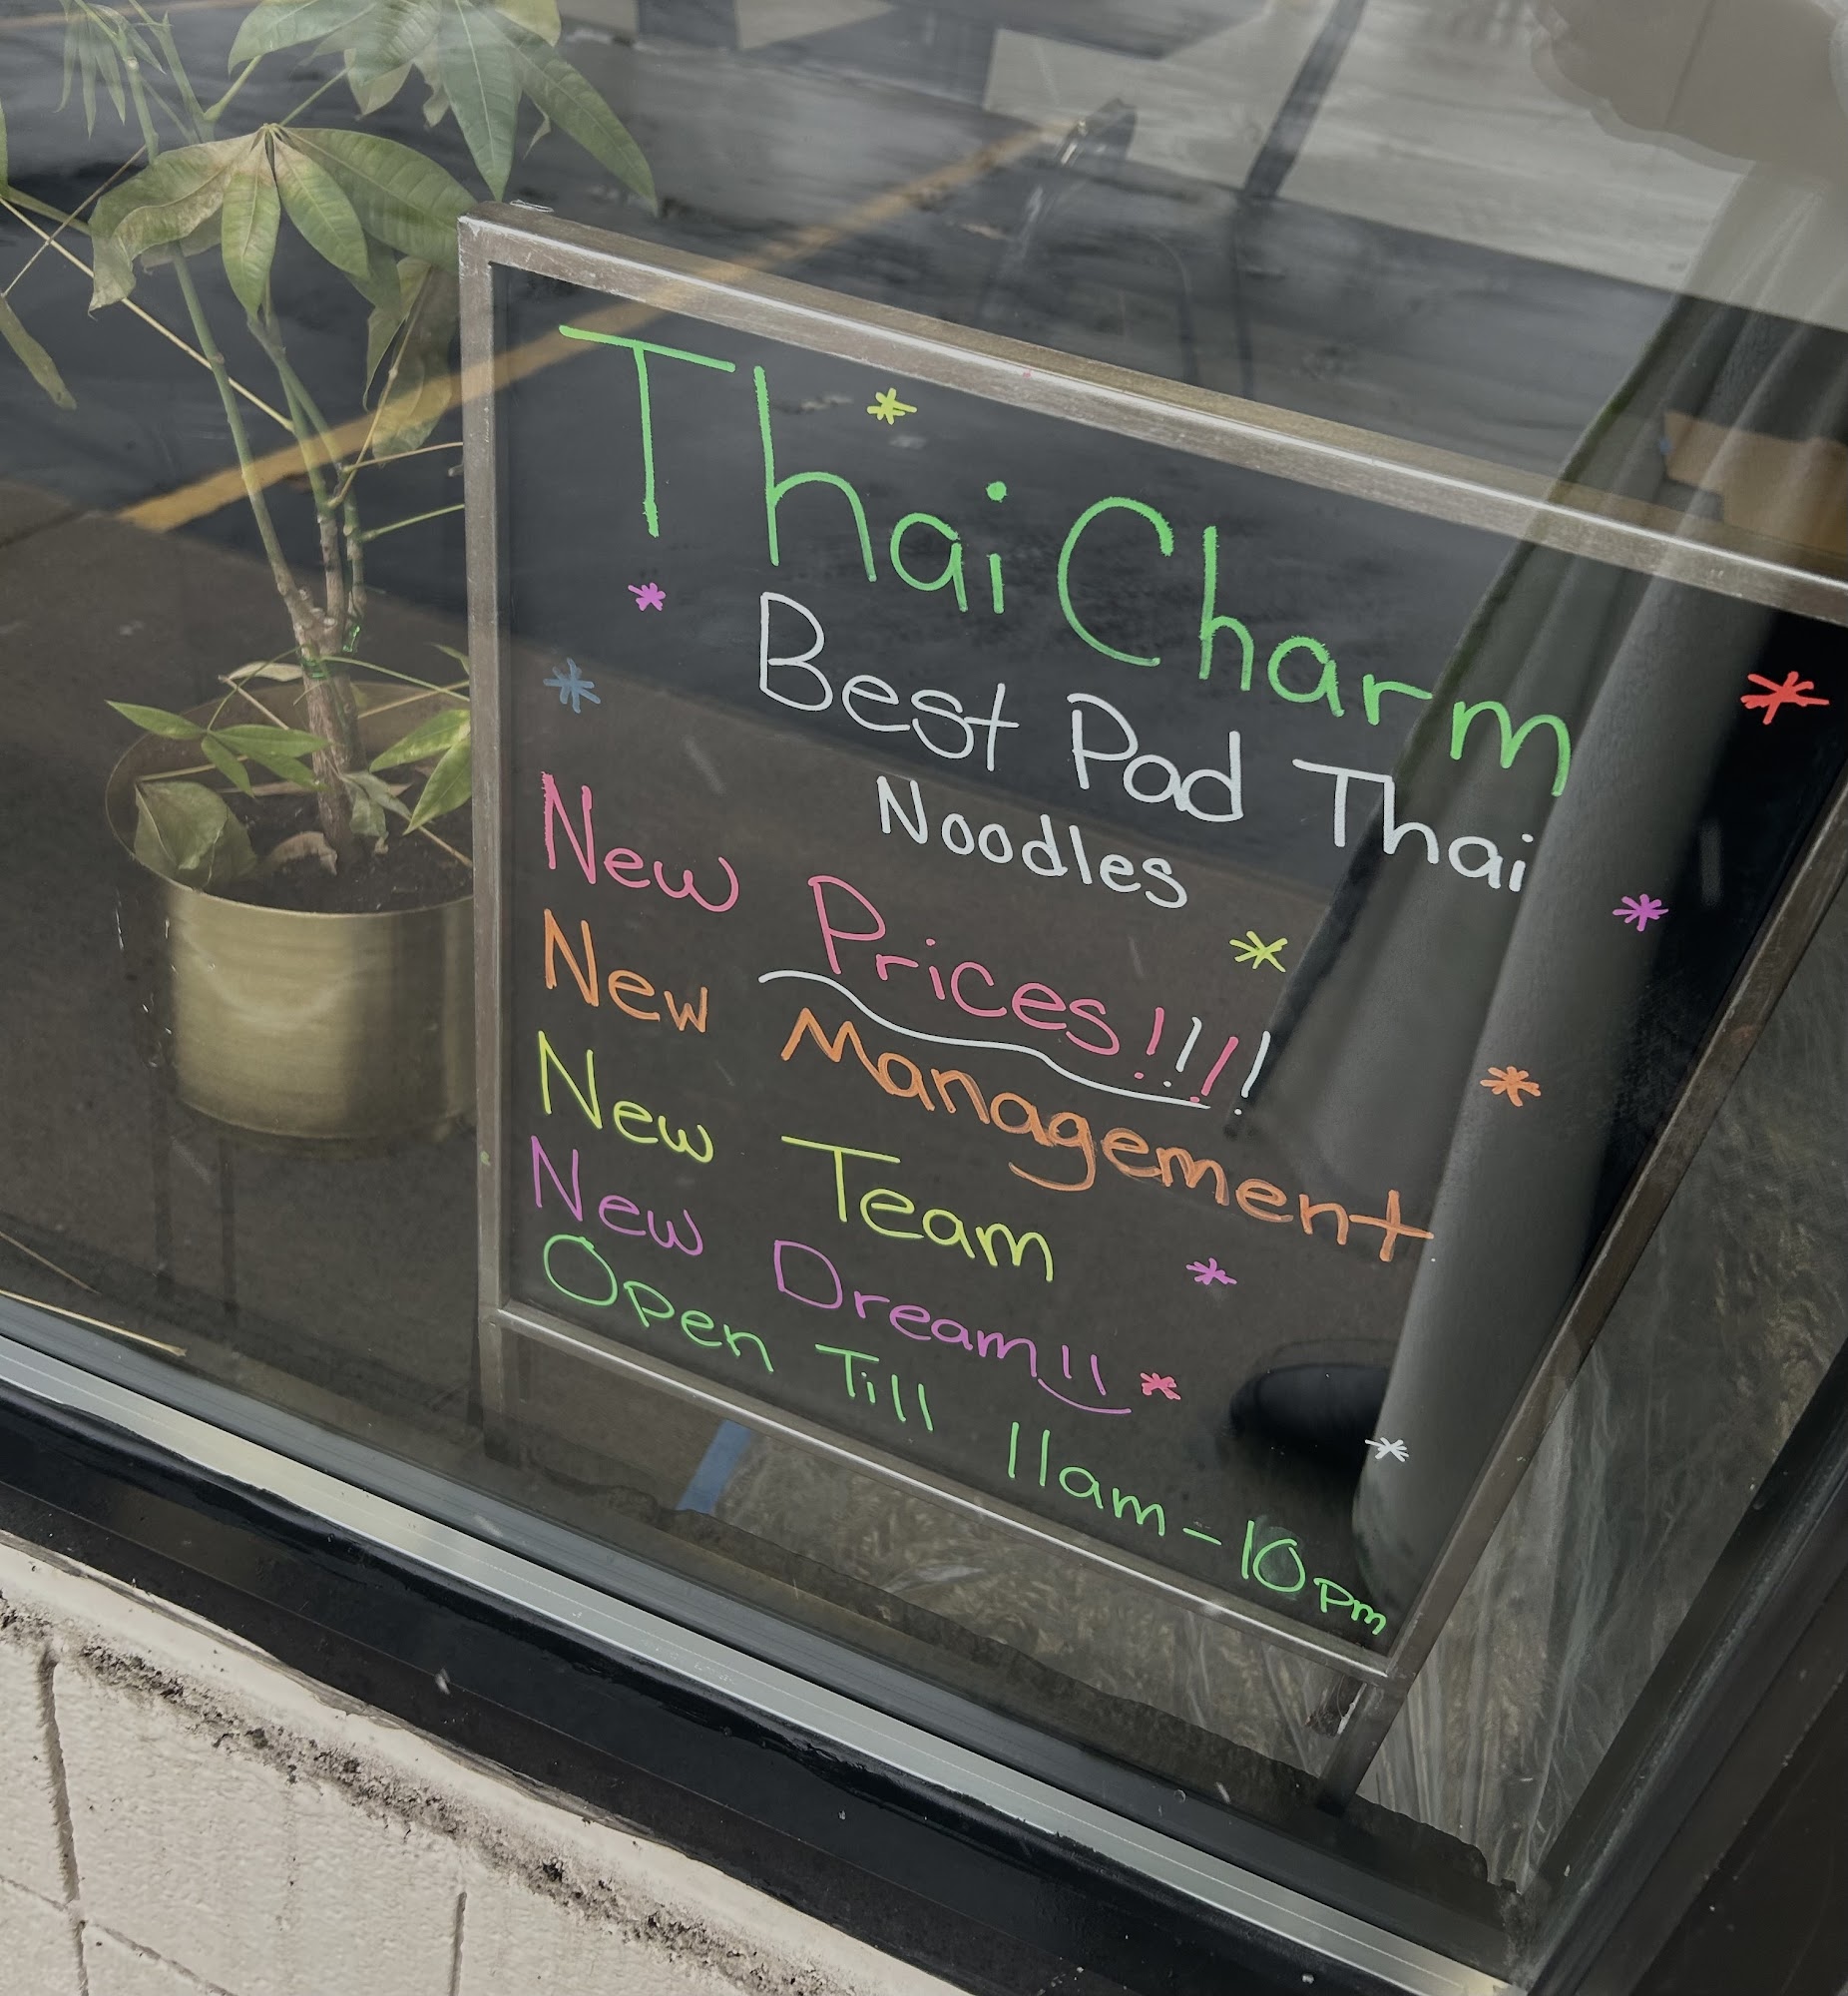 Thai Charm
Best Pad Thai
Noodles
New Prices!!!!
New Management
New Team
New Dream!!
Open Till 11am-10pm